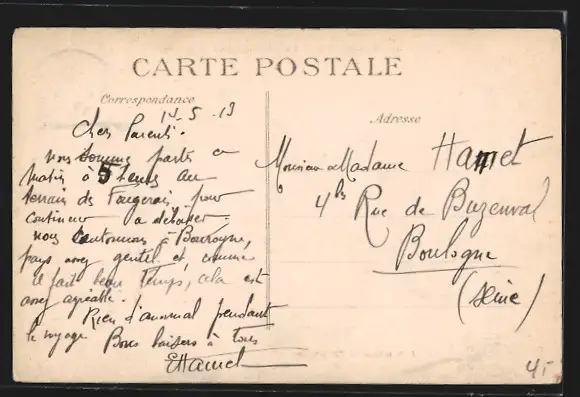 CARTE POSTALE
Correspondance
Adresse
5 - 13
Chers Parents.
nous sommes partis ce
matin à 5 heures du
terrain de Fougerais, pour
continuer à
nous cantonnons à Bourogne,
pays assez gentil et comme
il fait beau temps, cela est
assez agréable.
Rien d'anormal pendant
le voyage Bons baisers à tous
EHamet
Monsieur et Madame Hamet
4 bis Rue de Buzenval
Boulogne
(Seine)
4.-